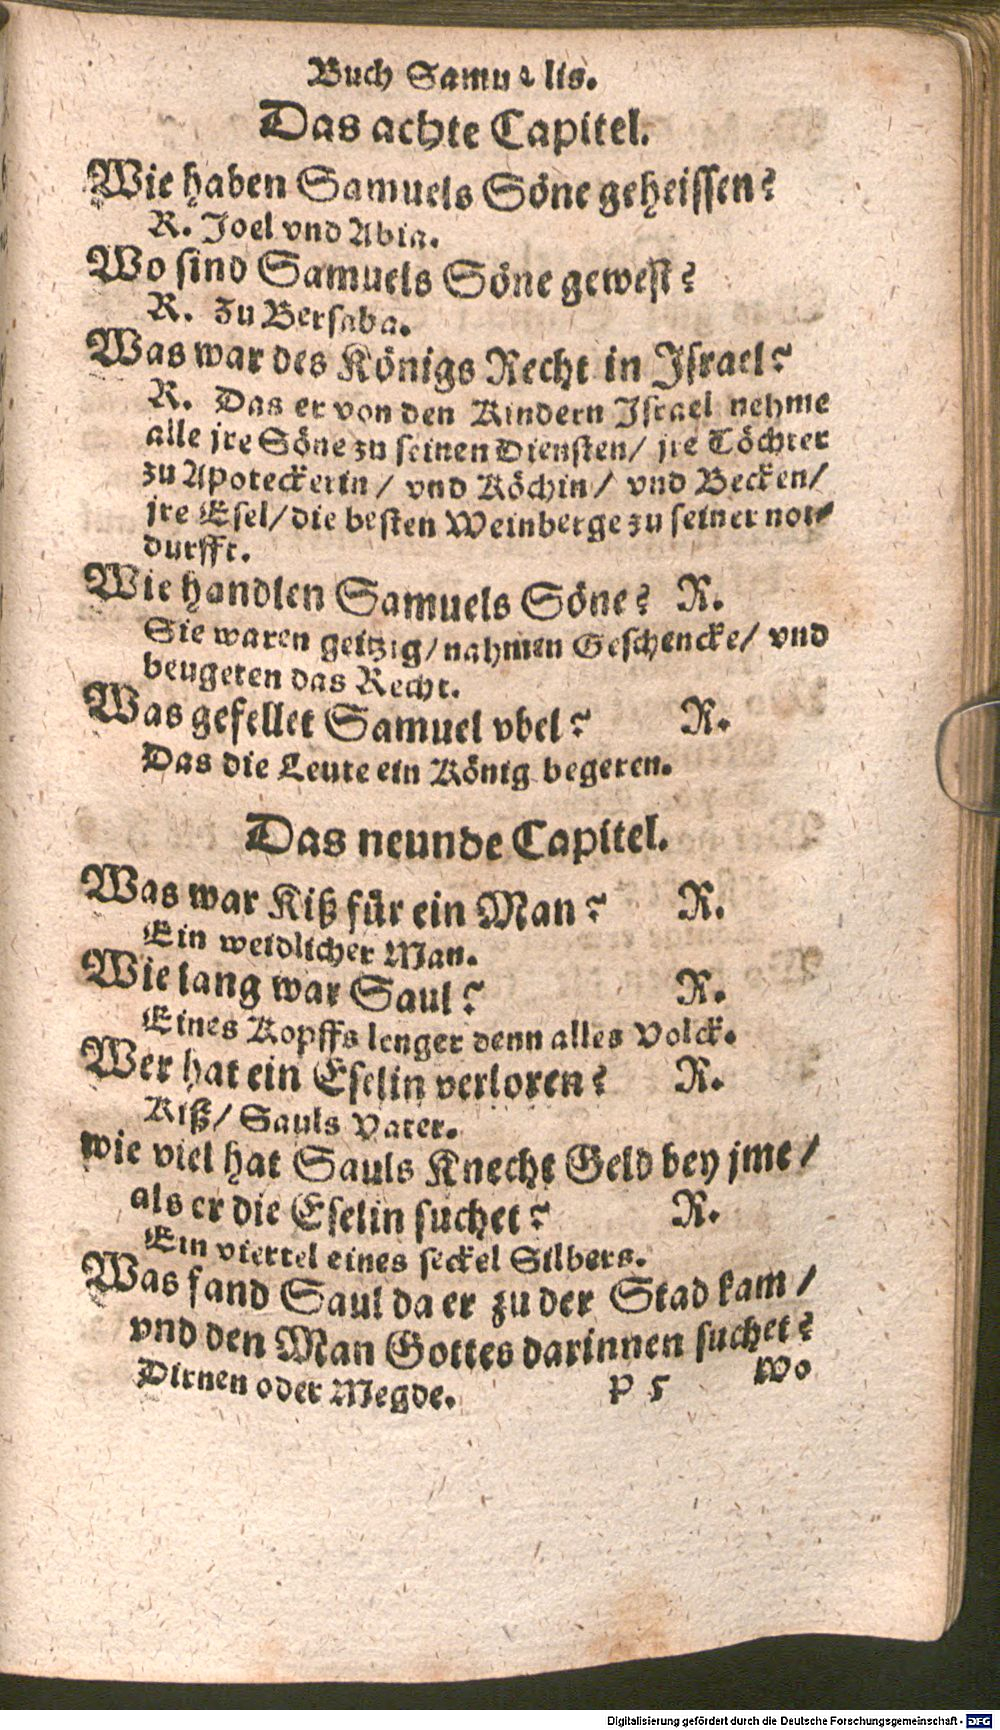 Buch Samuelis.
Das achte Capitel.
Wie haben Samuels Söne geheissen?
R. Joel vnd Abia.
Wo sind Samuels Söne gewest?
R. Zu Bersaba.
Was war des Königs Recht in Israel?
R. Das er von den Kindern Israel nehme
alle jre Söne zu seinen Diensten/ jre Töchter
zu Apoteckerin/ vnd Köchin/ vnd Becken/
jre Esel/ die besten Weinberge zu seiner not-
durfft.
Wie handlen Samuels Söne? R.
Sie waren geitzig/ nahmen Geschencke/ vnd
beugeten das Recht.
Was gefellet Samuel vbel? R.
Das die Leute ein König begeren.
Das neunde Capitel.
Was war Kiß für ein Man? R.
Ein weidlicher Man.
Wie lang war Saul? R.
Eines Kopffs lenger denn alles Volck.
Wer hat ein Eselin verloren? R.
Kiß/ Sauls Vater.
wie viel hat Sauls Knecht Geld bey jme/
als er die Eselin suchet? R.
Ein viertel eines seckel Silbers.
Was fand Saul da er zu der Stad kam/
vnd den Man Gottes darinnen suchet?
Dirnen oder Megde. P 5 Wo
Digitalisierung gefördert durch die Deutsche Forschungsgemeinschaft - DFG